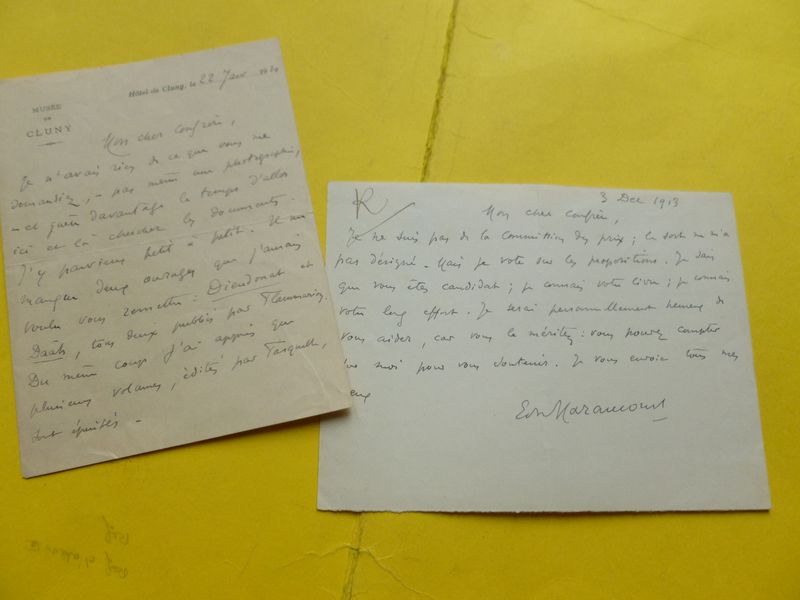 MUSÉE
DE
CLUNY
Hôtel de Cluny, le 22 Janv
Mon cher Confrère,
Je n'avais rien de ce que vous me
demandiez, – pas même une photographie,
– et guère davantage le temps d'aller
ici et là chercher les documents.
J'y parviens petit à petit. Il me
manque deux ouvrages que j'aurais
voulu vous remettre : Dieudonat et
Daâh, tous deux publiés par Flammarion.
Du même coup j'ai appris que
plusieurs volumes, édités par Fasquelle,
sont épuisés –
R
3 Dec 1913
Mon cher confrère,
Je ne suis pas de la Commission des prix ; le sort ne m'a
pas désigné. Mais je vote sur les propositions. Je sais
que vous êtes candidat ; je connais votre livre ; je connais
votre long effort. Je serai personnellement heureux de
vous aider, car vous le méritez : vous pouvez compter
sur moi pour vous soutenir. Je vous envoie tous mes
vœux
Edm Haraucourt